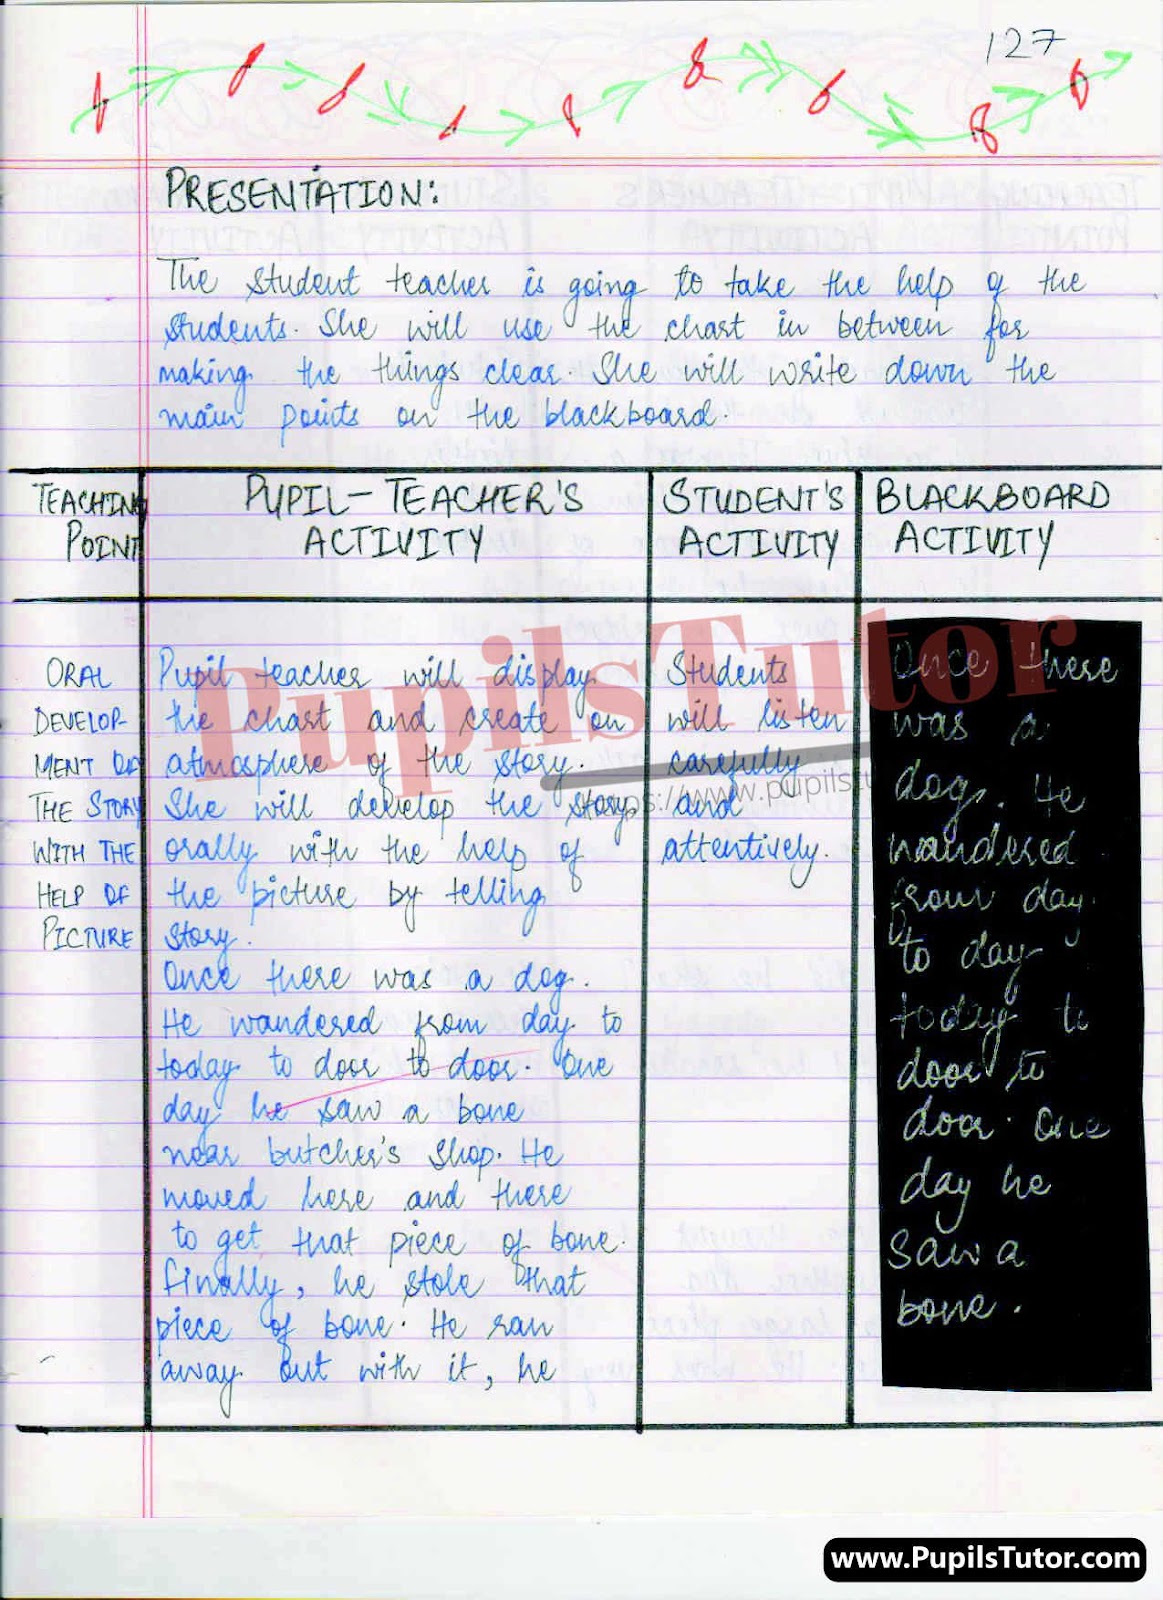 127
PRESENTATION:
The student teacher is going to take the help of the
students. She will use the chart in between for
making the things clear. She will write down the
main points on the blackboard.
TEACHING
POINT
PUPIL-TEACHER'S
ACTIVITY
STUDENT'S
ACTIVITY
BLACKBOARD
ACTIVITY
ORAL
DEVELOP-
MENT OF
THE STORY
WITH THE
HELP OF
PICTURE
Pupil teacher will display
the chart and create on
atmosphere of the story.
She will develop the story
orally with the help of
the picture by telling
story.
Once there was a dog.
He wandered from day to
today to door to door. One
day he saw a bone
near butcher's shop. He
moved here and there
to get that piece of bone.
Finally, he stole that
piece of bone. He ran
away out with it, he
Students
will listen
carefully
and
attentively.
Once there
was a
dog. He
wandered
from day
to day
today to
door to
door. One
day he
saw a
bone.
PupilsTutor
www.PupilsTutor.com